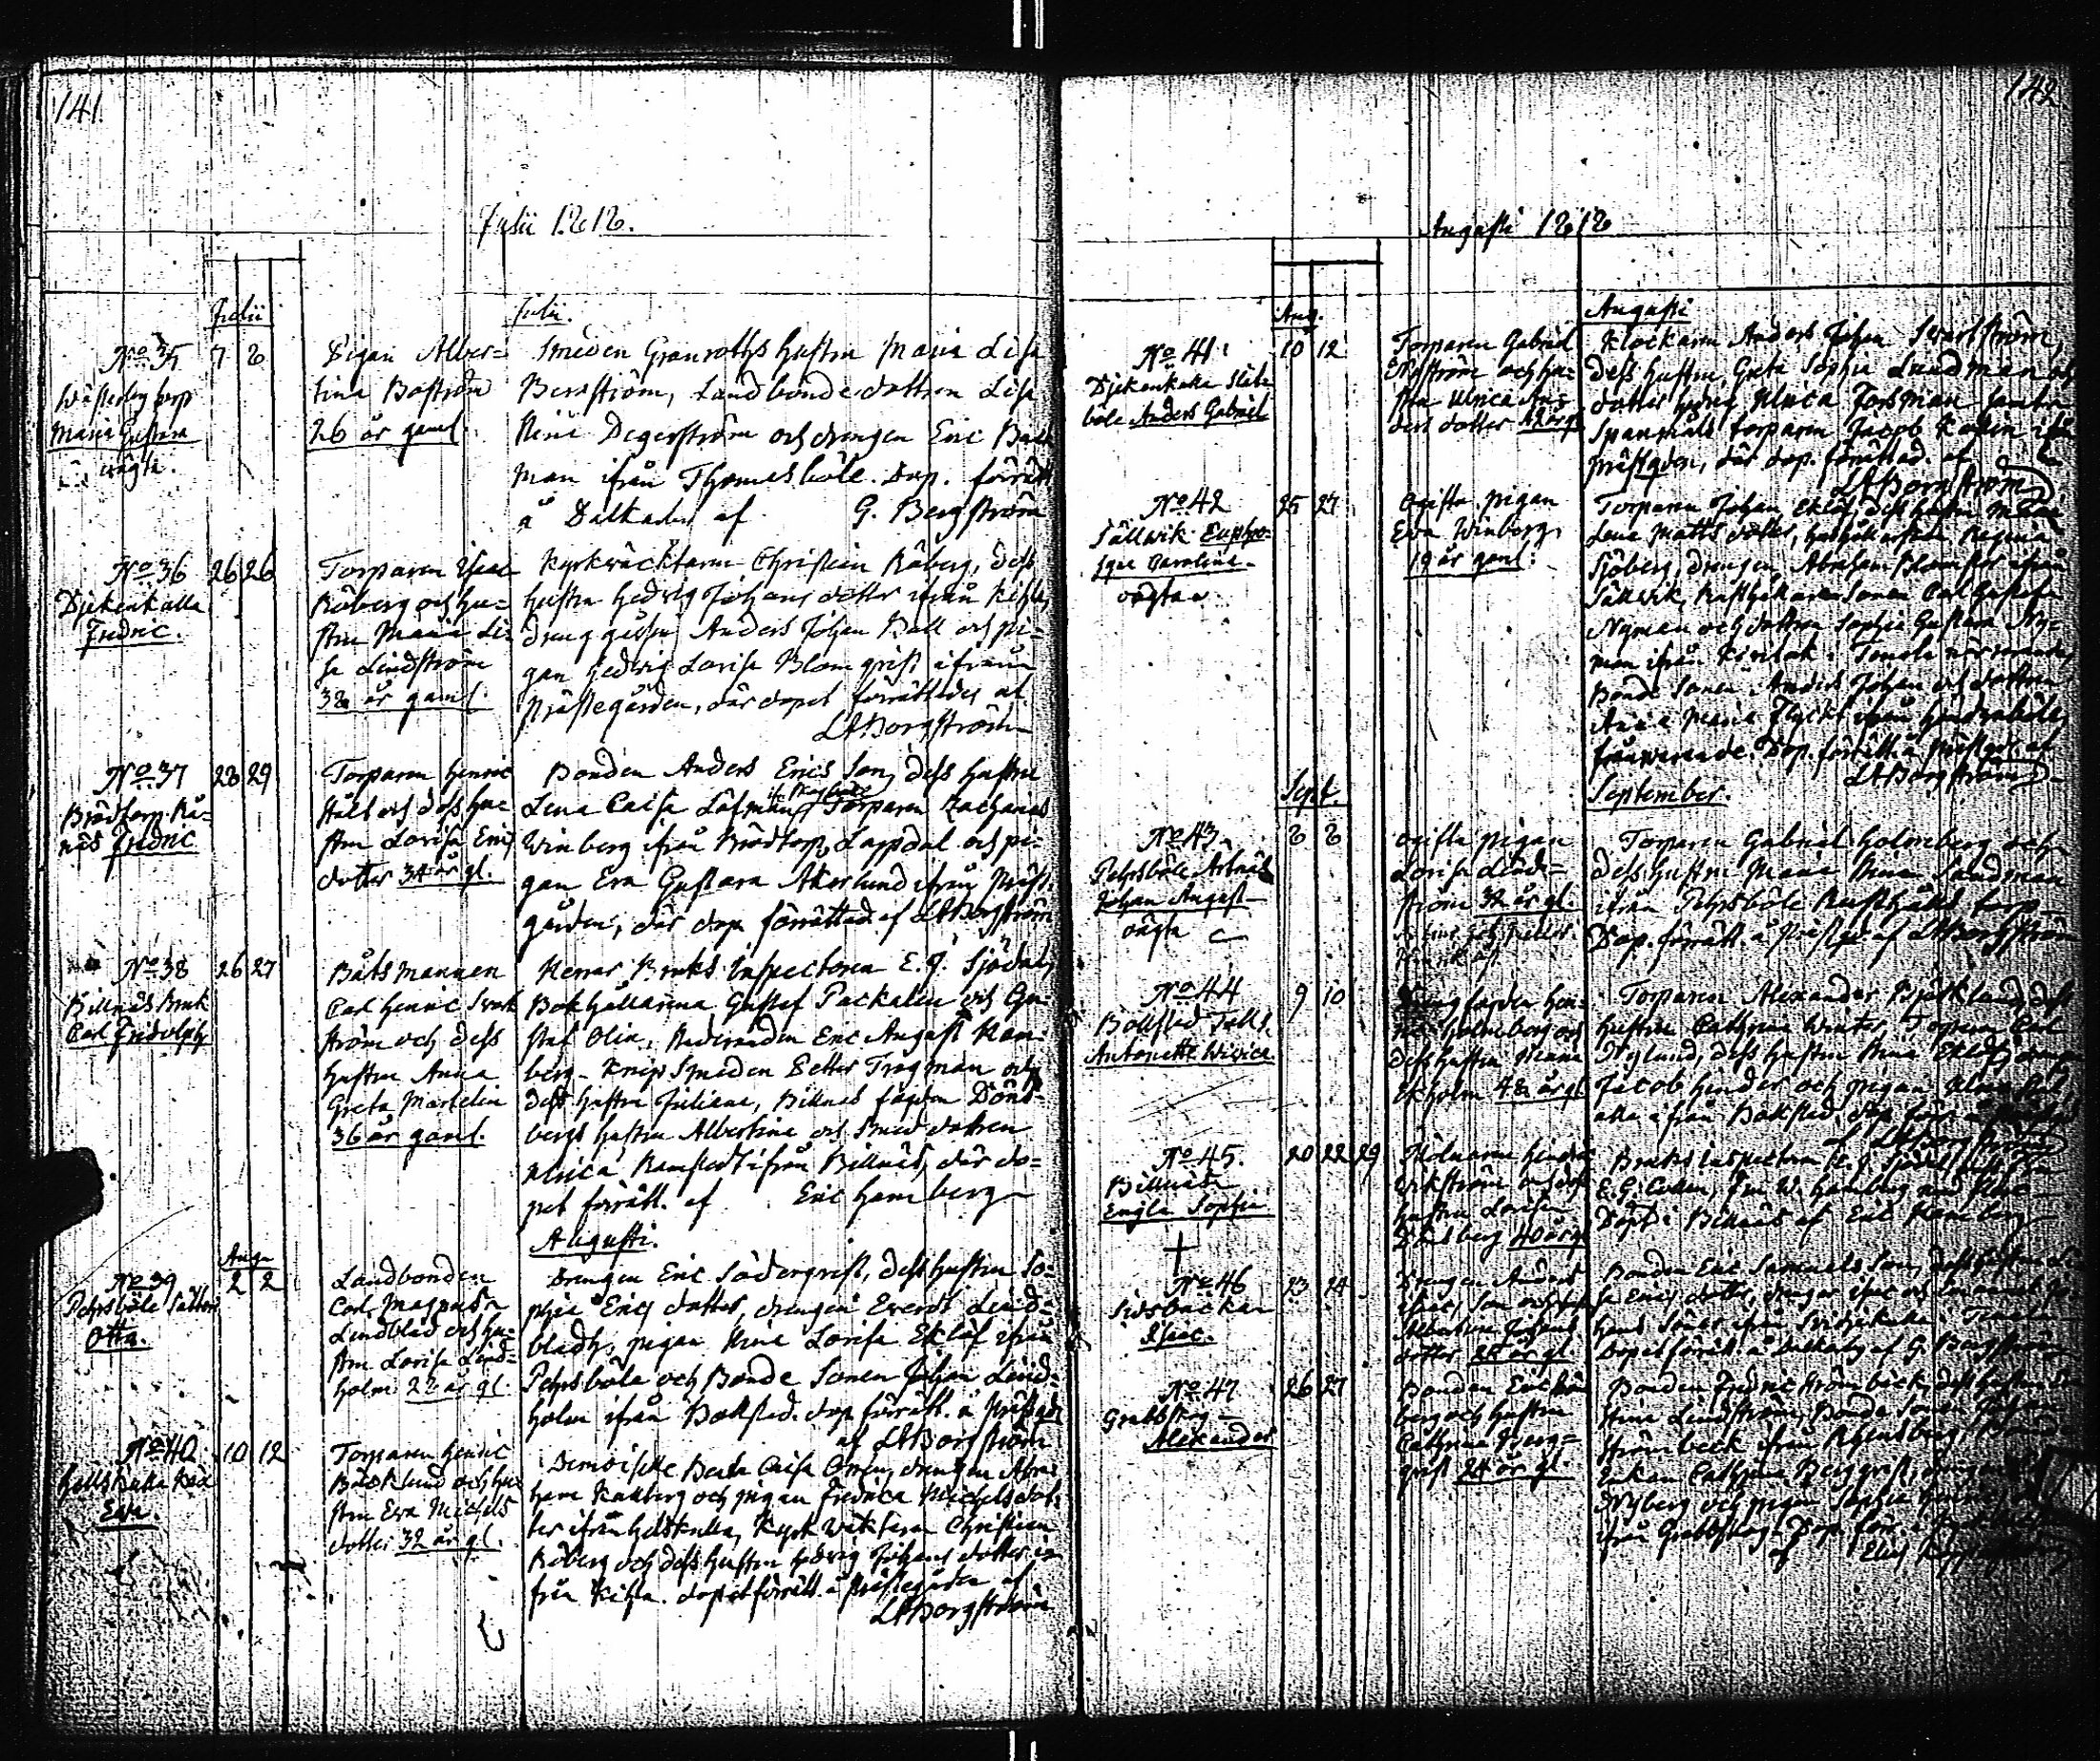 141.
Julii 1818.
Julii
Julii.
No 35
7 8
Westerby torp
Maria Gustava
oägta.
Pigan Alber=
tina Boström
26 år gaml.
Smeden Granroths hustru Maria Lisa
Bergström, Landbonde dottren Lisa
Stina Degerström och drengen Eric Back
man ifrån Thomasböle. Dop. förrätt
å Dalkarby af G. Bergström
No 36
26 26
Djekenkulla
Fredric.
Torparen Isaac
Råberg och hu=
stru Maria Li=
sa Lindström
32 år gaml.
Kyrkväcktaren Christian Råberg, dess
hustru Hedvig Johans dotter ifrån Kihla,
dreng gåssen Anders Johan Ball och pi=
gan Hedvig Lovisa Blomqvist ifrån
Prästegården, där dopet förrättades af
LABorgström
No 37
28 29
Brödtorp Rå=
näs Fredric
Torparen Henric
Ståhl och dess hu
stru Lovisa Erics
dotter 34 år gl.
Bonden Anders Erics Son, dess hustru
Lena Caisa Löfman, Torparen Zacharias
Winberg ifrån Brödtorp Lappdal och pi=
gan Eva Gustava Åkerlund ifrån Präst=
gården, där dop förrättad. af LABorgström
No 38
26 27
Billnäs Bruk
Carl Fridolph
Båtsmannen
Carl Henric Svart
ström och dess
hustru Anna
Greta Martelin
36 år gaml.
Herrar Bruks Inspectoren E. J. Sjödahl,
Bokhållarena Gustaf Packalen och Gu=
staf Olin, Studeranden Eric August Ham=
berg - Knipsmeden Petter Trogman och
dess hustru Juliana, Billnäs fogden Döns=
bergs hustru Albertina och Smed dottren
Ulrica Ramstedt ifrån Billnäs, där do=
pet förrätt. af Eric Hamberg
Augusti.
Aug.
No 39
2 2
Pehrsböle Sätteri
Otto.
Landbonden
Carl Magnus
Lindblad och hu=
stru Lovisa Lind=
holm 22 år gl.
Drengen Eric Söderqvist, dess hustru So=
phia Erics dotter, drengen Everdt Lind=
bladh, pigan Stina Lovisa Eklöf ifrån
Pehrsböle och Bonde Sonen Johan Lind=
holm ifrån Bollstad. dop förrätt. å Prästgdn
af LABorgström
No 40
10 12
Gellskulla
Eva.
Torparen Henric
Bäcklund och hu
stru Eva Michels
dotter 32 år gl.
Demoiselle Beata Caisa Coren, drengen Abra
ham Kallberg och pigan Fredrica Michelsdot=
ter ifrån Gellskulla, Kyrk väktaren Christian
Råberg och dess hustru Hedvig Johans dotter i=
från Kihla. dopet förrätt. å prästegården af
LABorgström
142
Augusti 1818
Aug.
Augusti
No 41
10 12
Djekenkulla
böle Anders Gabriel
Torparen Gabriel
och hu=
stru Ulrica An=
ders dotter
Klockaren Anders Johan Svartström,
dess hustru, Greta Sophia Lindman och
dotter Ulrica Forsman samt
torparen Jacob
prästgdn, där dop. förrättad. af
LABorgström
No 42
25 27
Sällvik Euphro=
syne Carolina
oägta
Ogifta pigan
Eva Winberg
19 år gaml.
Torparen Johan Eklöf, dess hustru Maria
Lena Matts dotter, hushållerskan Regina
Sjöberg, drengen Abraham Blomster ifrån
Sällvik, Rusthållare Sonen Carl Gustaf
Nyman och dottren Sophia Gustava Ny=
man ifrån i Tenala närvarande,
Bonde Sonen Anders Johan och dottren
Anna Maria Flyckt ifrån
frånvarande. Dop. förrätt. å prästgdn af
LABorgström
Sept.
September.
No 43
8 8
Pehrsböle
Johan August
oägta
Ogifta pigan
Lovisa Lind=
ström 32 år gl.
Torparen Gabriel Holmberg och
dess hustru Maria Stina Sandman
ifrån Pehrsböle Rusthålls torp
Dop. förrätt. å Prästgd af LABorgström
No 44
9 10
Bollstad
Antonette
Holmberg och
dess hustru
Ekholm 42 år gl.
Torparen Alexander Björklund, dess
hustru Cathrina Winter, Torparen Carl
Nylund, dess hustru Stina Eklöf, dreng
Jacob Hinder och pigan
alla ifrån Bollstad, dop förr. å
LABorgström
No 45.
20 22 29
Billnäs
Engla Sophia
†
Mölnaren Hendric
Wikström och dess
hustru Lovisa
40 år gl.
Bruks inspectoren E. J. Sjödahl
E. G. Fru W. Hamberg
Döpt i Billnäs af Eric Hamberg
No 46
23 24
Sidsbackan
Isaac.
Drengen Anders
Isacs Son och
Albertina Johans
dotter 25 år gl.
Bonden Eric Samuels Son, dess hustru
Erics dotter, drengar Isac och
hans Söner ifrån i Tenala
Dopet förrätt. å Dalkarby af G. Bergström
No 47
26 27
Grabbskog
Alexander
Bonden Eric
berg och hustru
Cathrina Berg=
qvist 24 år gl.
Bonden Fredric Strömbeck, dess hustru
Stina Lindström, Bonde Sonen Johan
Strömbeck ifrån Bonde
Enkan Cathrina Bergqvist, drengen
Nyberg och pigan Sophia
ifrån Grabbskog. Dop. förr. i
af